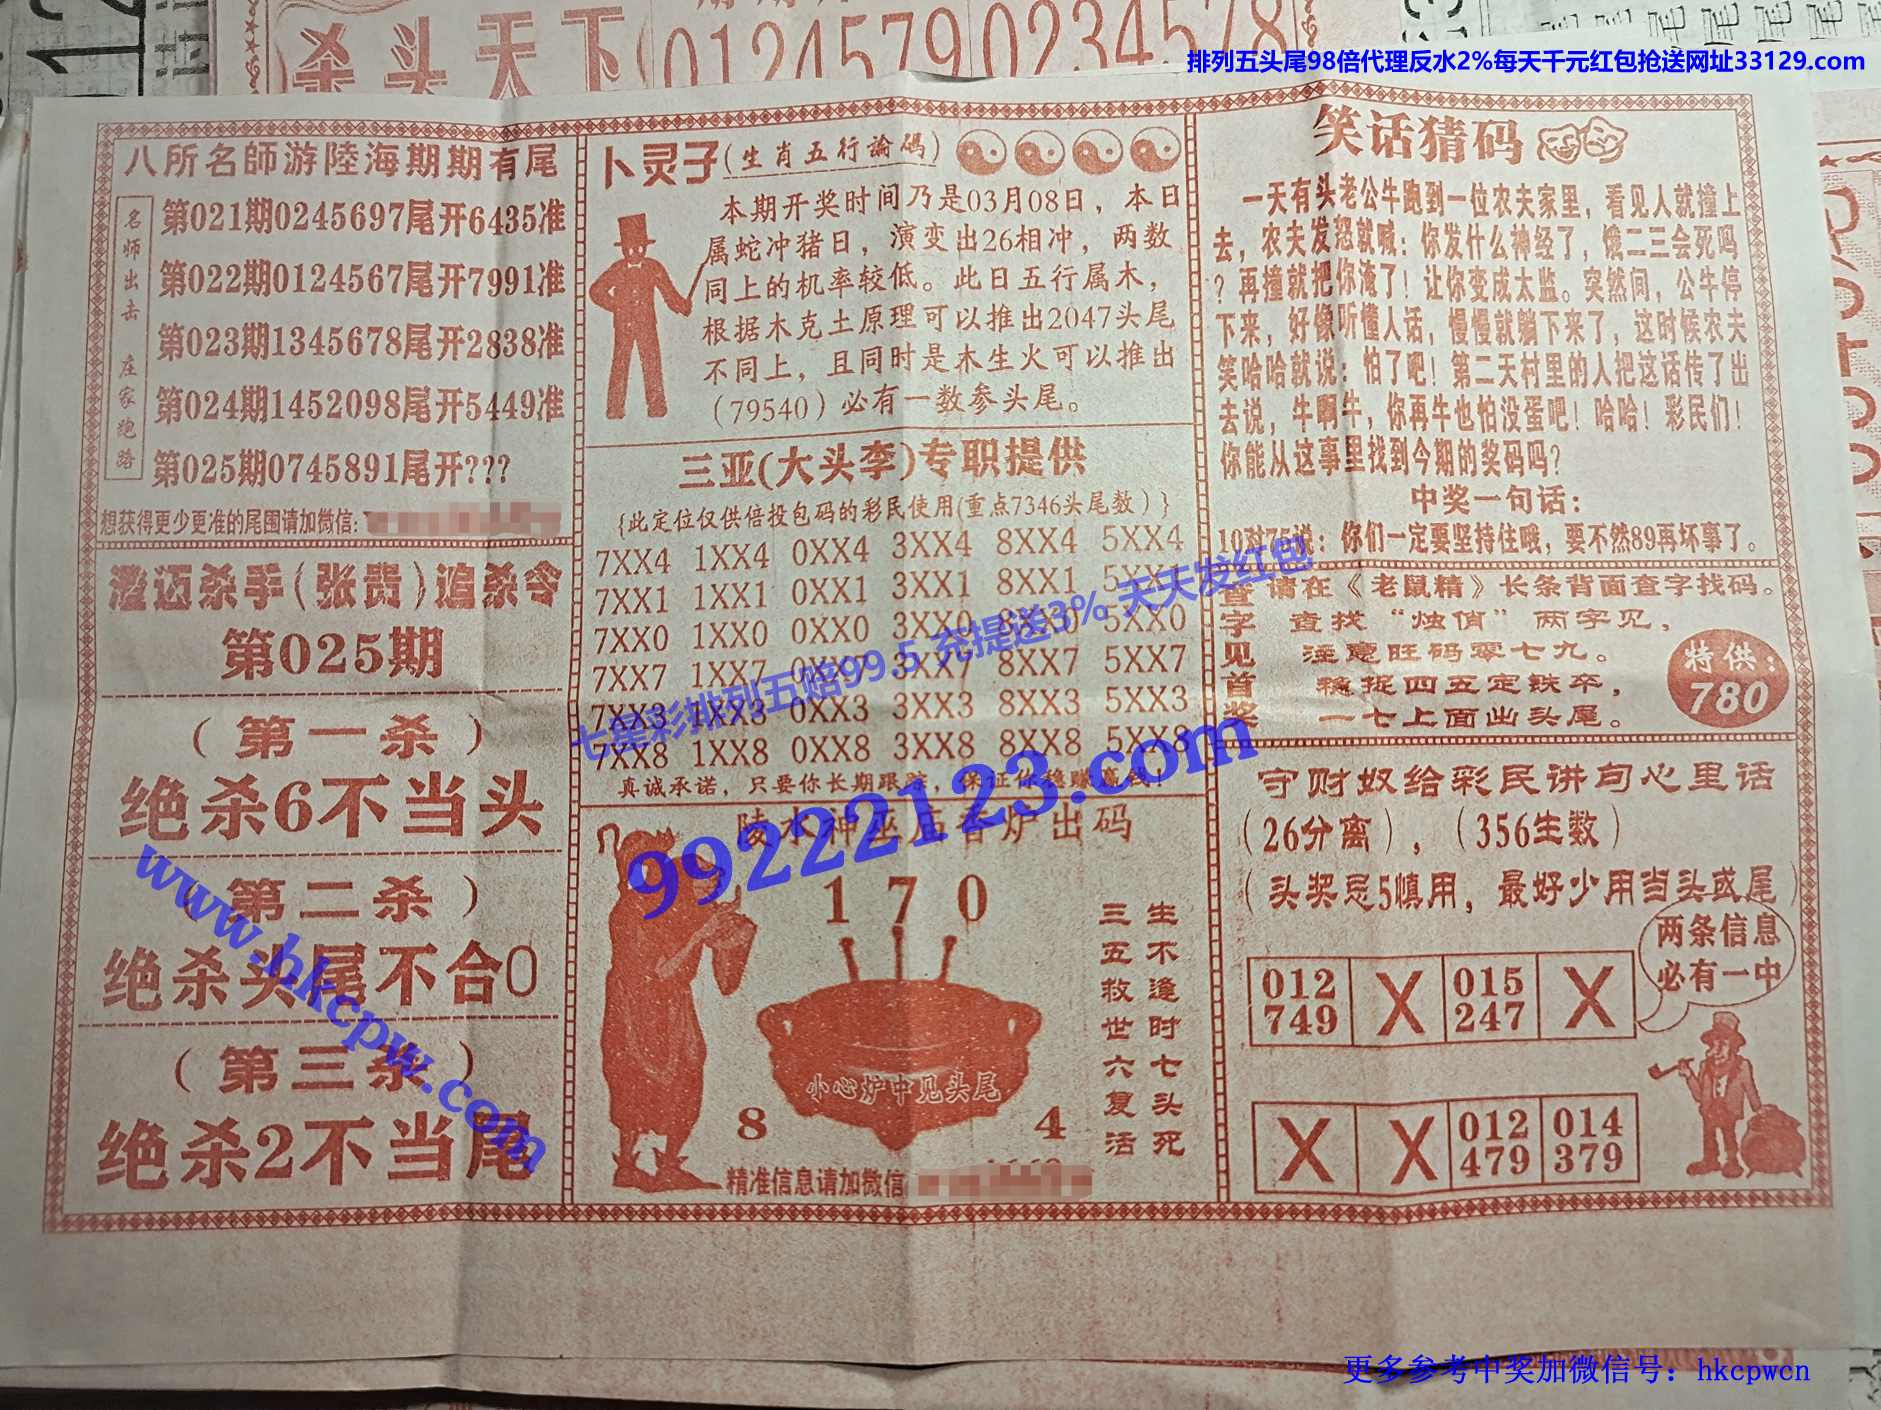 杀头天下
0124579
0234578
排列五头尾98倍代理反水2%每天千元红包抢送网址33129.com
八所名師游陸海期期有尾
名师出击 庄家跑路
第021期0245697尾开6435准
第022期0124567尾开7991准
第023期1345678尾开2838准
第024期1452098尾开5449准
第025期0745891尾开???
想获得更少更准的尾围请加微信:
澄迈杀手(张贵)追杀令
第025期
(第一杀)
绝杀6不当头
(第二杀)
绝杀头尾不合0
(第三杀)
绝杀2不当尾
卜灵子(生肖五行論碼)
本期开奖时间乃是03月08日，本日
属蛇冲猪日，演变出26相冲，两数
同上的机率较低。此日五行属木，
根据木克土原理可以推出2047头尾
不同上，且同时是木生火可以推出
（79540）必有一数参头尾。
三亚(大头李)专职提供
{此定位仅供倍投包码的彩民使用(重点7346头尾数)}
7XX4 1XX4 0XX4 3XX4 8XX4 5XX4
7XX1 1XX1 0XX1 3XX1 8XX1 5XX1
7XX0 1XX0 0XX0 3XX0 8XX0 5XX0
7XX7 1XX7 0XX7 3XX7 8XX7 5XX7
7XX3 1XX3 0XX3 3XX3 8XX3 5XX3
7XX8 1XX8 0XX8 3XX8 8XX8 5XX8
真诚承诺，只要你长期跟踪，保证你稳赚赢钱！
陵水神巫庙香炉出码
1 7 0
生不逢时七头死
三五救世六复活
小心炉中见头尾
8 4
精准信息请加微信
笑话猜码
一天有头老公牛跑到一位农夫家里，看见人就撞上
去，农夫发怒就喊：你发什么神经了，饿二三会死吗
？再撞就把你淹了！让你变成太监。突然间，公牛停
下来，好像听懂人话，慢慢就躺下来了，这时候农夫
笑哈哈就说：怕了吧！第二天村里的人把这话传了出
去说，牛啊牛，你再牛也怕没蛋吧！哈哈！彩民们！
你能从这事里找到今期的奖码吗？
中奖一句话：
10对75说：你们一定要坚持住哦，要不然89再坏事了。
查字见首奖
请在《老鼠精》长条背面查字找码。
查找“烛俏”两字见，
注意旺码零七九。
稳捉四五定铁卒，
一七上面出头尾。
特供：
780
守财奴给彩民讲句心里话
（26分离），（356生数）
（头奖忌5慎用，最好少用当头或尾）
两条信息
必有一中
012 X 015 X
749 247
X X 012 014
479 379
七星彩排列五赔99.5 充提送3% 天天发红包
99222123.com
www.hkcpw.com
更多参考中奖加微信号：hkcpwcn